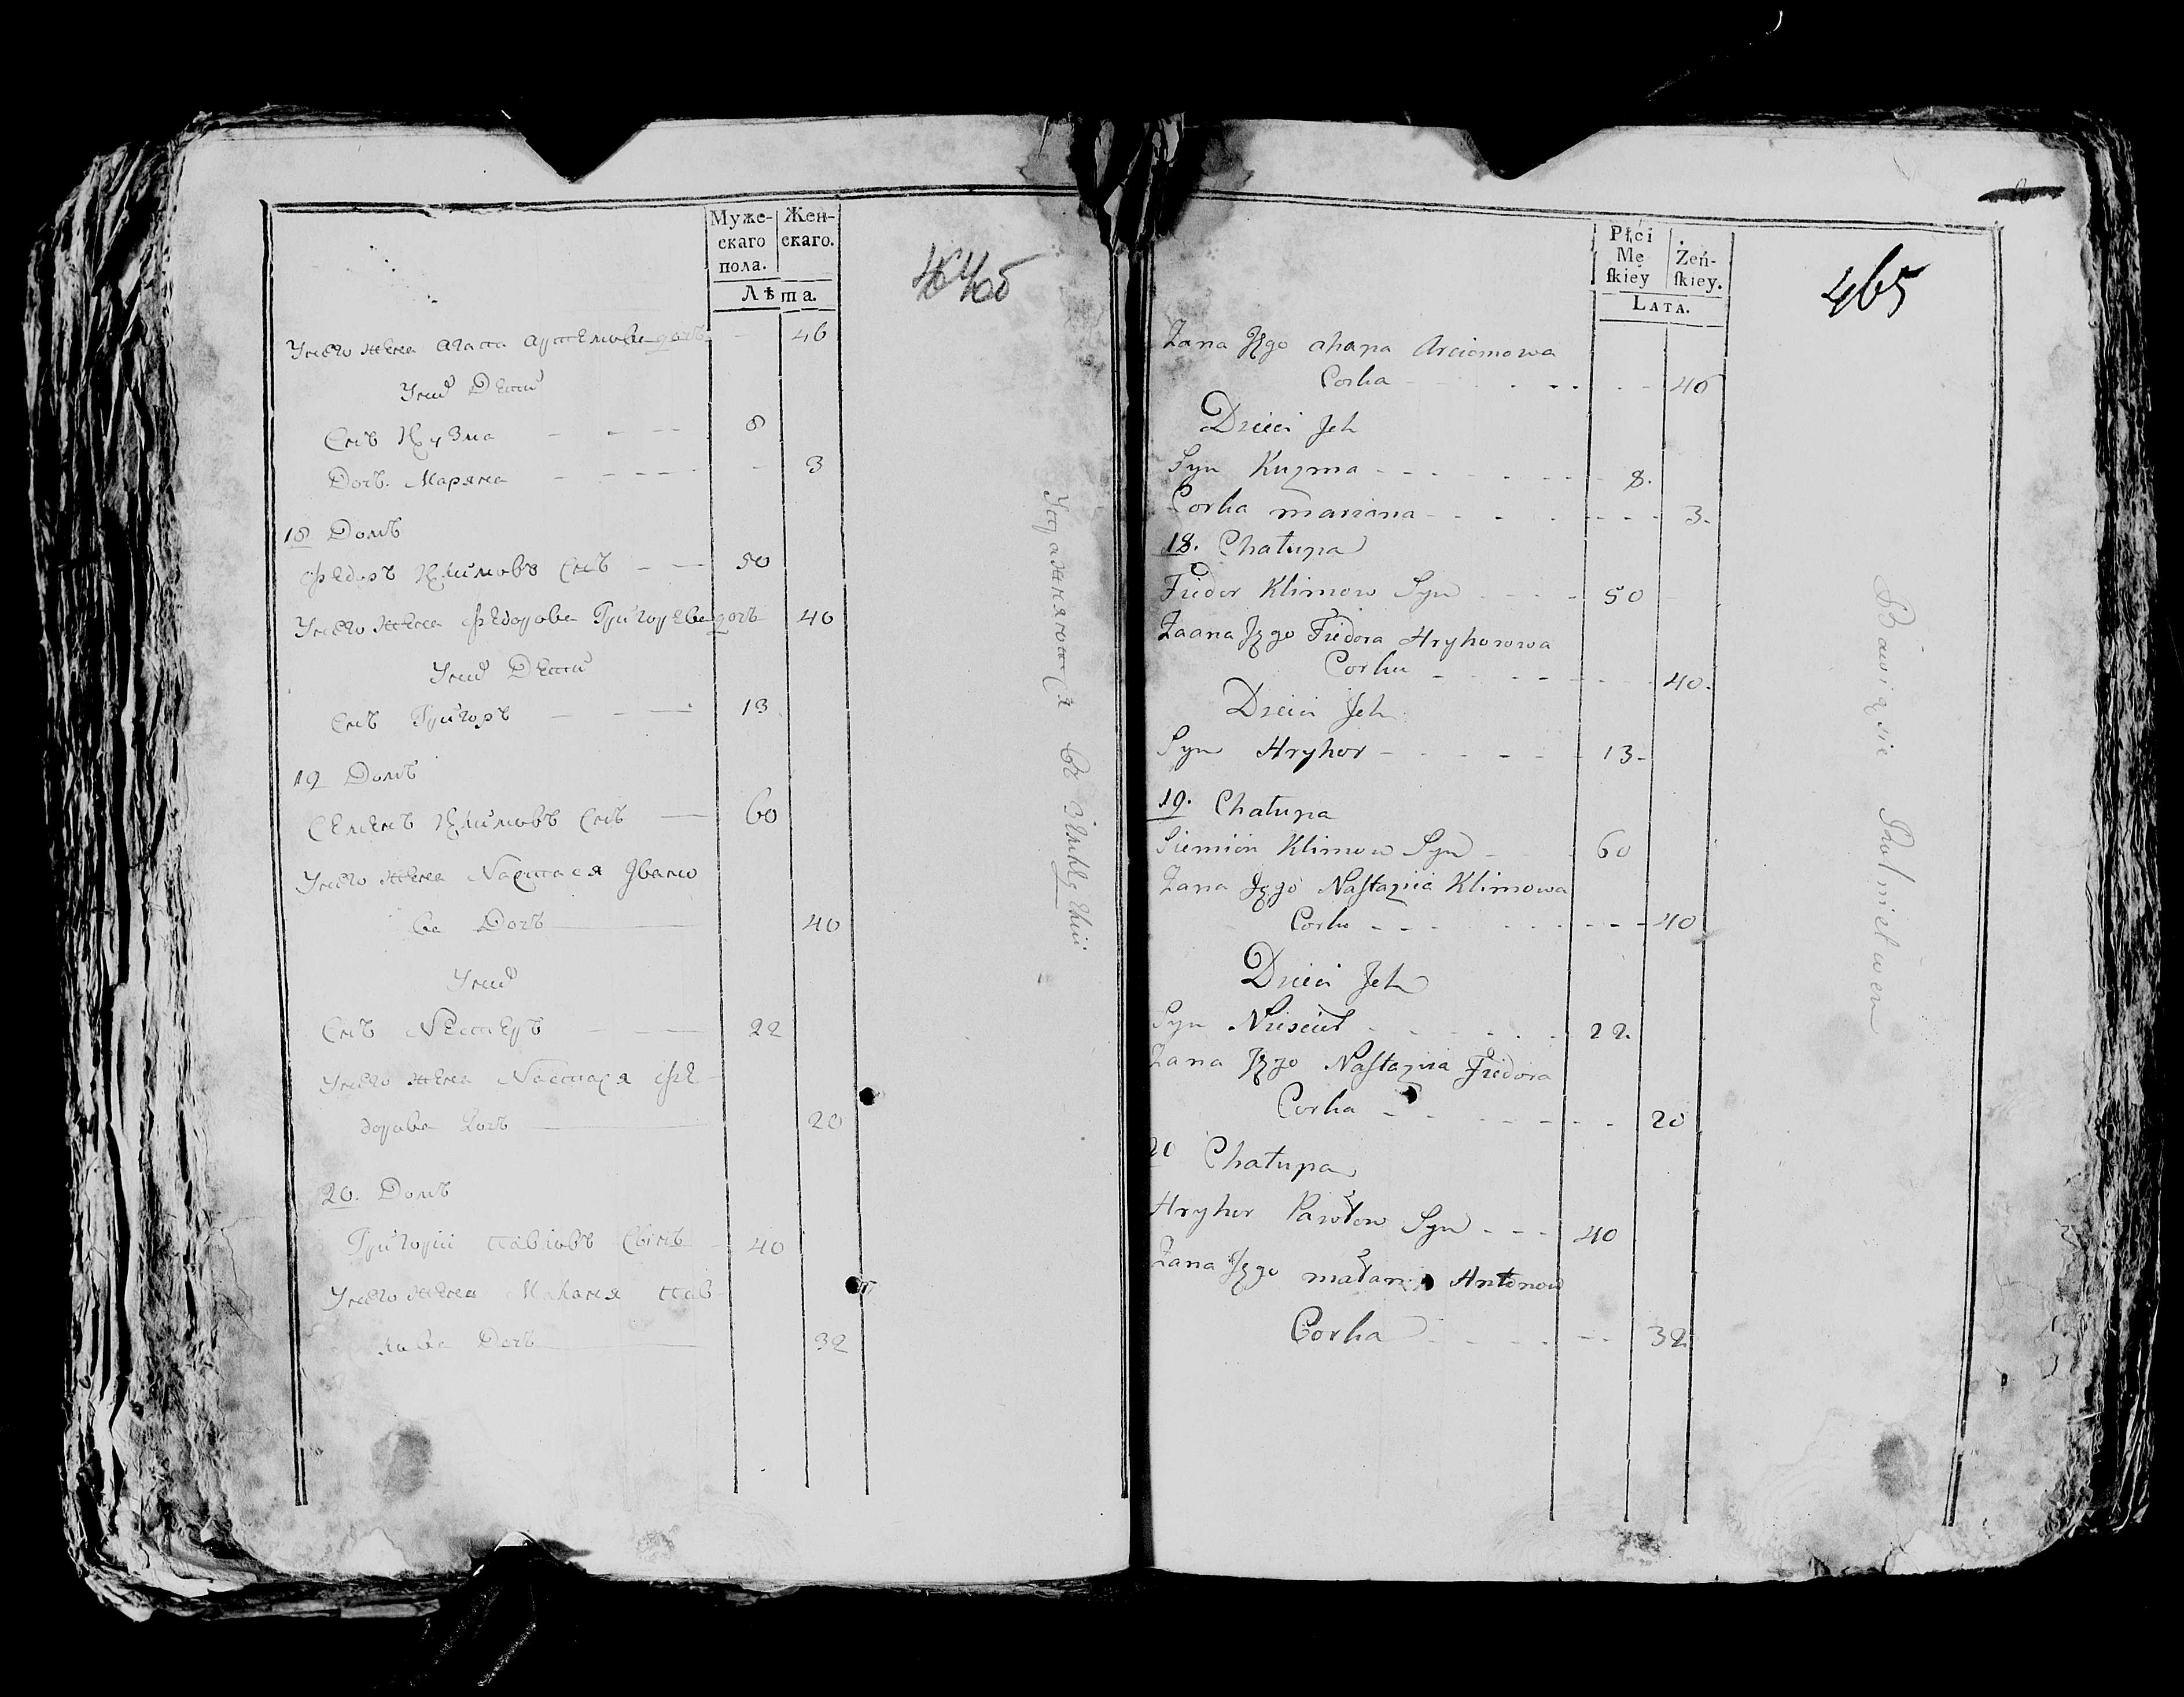 Муже-
скаго
пола.
Жен-
скаго.
Лѣта.
464об
Унего жена Агапа Артемова дочъ - 46
Унихъ Дети
Снъ Кузма - - - 8
Дочъ Маряна - - - - - 3
18 Домъ
Федоръ Климовъ Снъ - - 50
Унего жена Федорова Григорева дочъ 40
Унихъ Дети
Снъ Григоръ - - - 13
19 Домъ
Семенъ Климовъ Снъ - 60
Унего жена Настася Ивано
ва Дочъ 40
Унихъ
Снъ Нестеръ - - 22
Унего жена Настася Фе
дорова Дочъ 20
20. Домъ
Григорiй Павловъ Сынъ - 40
Унего жена Маланя Пав
лова Дочъ 32
Упражняются въ земледелiи
Płci
Mę
ſkiey
Żeń-
ſkiey.
LATA.
465
Żana Jego ahapa Arciomowa
Corka - - - - - - 46
Dzieci Jch
Syn Kuzma - - - - - - - 8.
Corka mariana - - - - - - - 3.
18. Chałupa
Fiedor Klimow Syn - - - - 50
Żaana Jego Fiedora Hryhorowa
Corka - - - - - - - 40.
Dzieci Jch
Syn Hryhor - - - - - - 13.
19. Chałupa
Siemion Klimow Syn - - 60
Żana Jego Naſtazija Klimowa
Corka - - - - - - - - 40
Dzieci Jch
Syn - - - - - - 22.
Żana Jego Naſtazija Fiedora
Corka - - - - - - - 20
20 Chałupa
Hryhor Pawłow Syn - - - 40
Żana Jego małan Antonow
Corka - - - - - - 32
Bawią się Rolnictwem